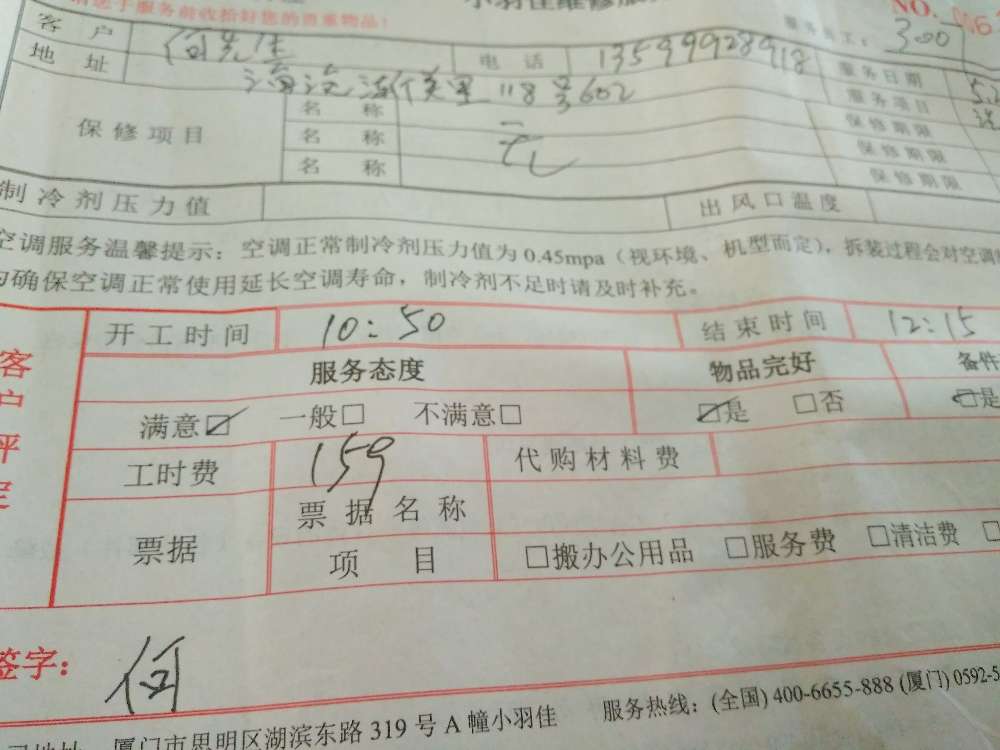 请送于服务前收拾好您的贵重物品!
小羽佳维修服
NO.
客户 何先生 电话 13599928918 服务员工: 300
地址 118号602 服务日期
保修项目 名称 无 服务项目
名称 保修期限
名称 保修期限
保修期限
制冷剂压力值 出风口温度
空调服务温馨提示：空调正常制冷剂压力值为0.45mpa（视环境、机型而定），拆装过程会对空调
为确保空调正常使用延长空调寿命，制冷剂不足时请及时补充。
客户评定
开工时间 10:50 结束时间 12:15
服务态度 物品完好 备件
满意☑ 一般□ 不满意□ ☑是 □否 ☑是
工时费 159 代购材料费
票据 票据名称
项目 □搬办公用品 □服务费 □清洁费 □
签字: 何
厦门市思明区湖滨东路319号A幢小羽佳 服务热线：(全国) 400-6655-888 (厦门) 0592-5